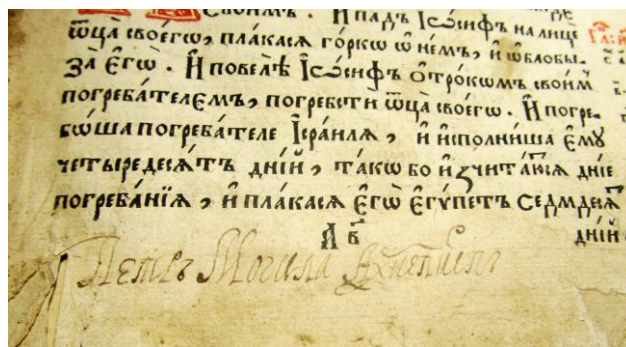 своимъ . И падъ Іѡ́сифъ на лице
ѿца̀ своегѡ̀, пла́кася го́ркѡ ѡ не́мъ, и҆ ѡблобы
за̀ є҆гѡ̀ . И҆ повелѣ̀ І҆ѡ́сифъ ѻ҆́трокѡмъ свои̑мъ
погреба́телемъ, погребсти ѿца̀ своегѡ . И҆ погре-
бо́ша погреба́теле І҆сра́иля , и҆ и҆спо́лниша є҆мꙋ̀
четыредеся́тъ дні́й , та́кѡ бо и҆ счита́ются дніе
погреба́нїѧ , и҆ пла́кася є҆гѡ̀ є҆гѵ́петъ се́дмдеся́т
л҃ в҃ дні́й
Петръ Могила